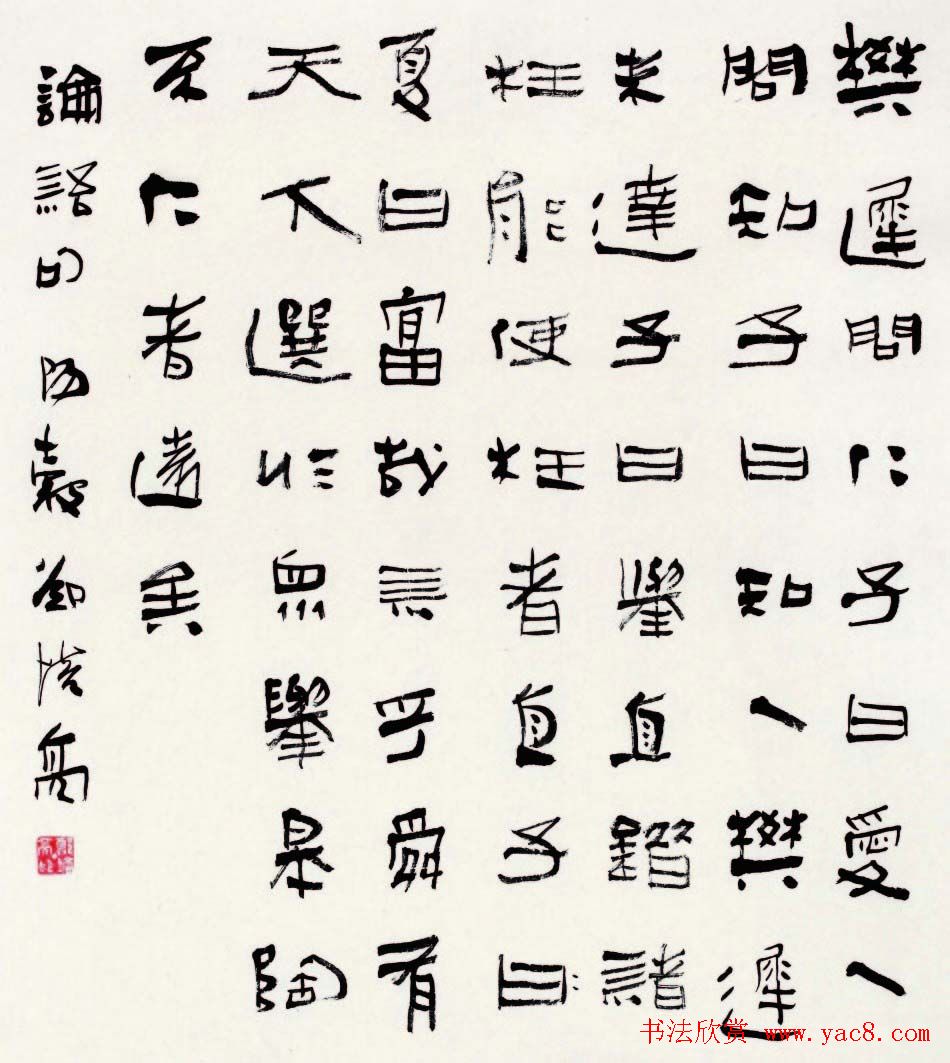 樊遲問仁子曰愛人
問知子曰知人樊遲
未達子曰舉直錯諸
枉能使枉者直子曰
夏曰富哉言乎舜有
天下選於眾舉皋陶
不仁者遠矣
論語句 陽穀鄭培亮
书法欣赏 www.yac8.com